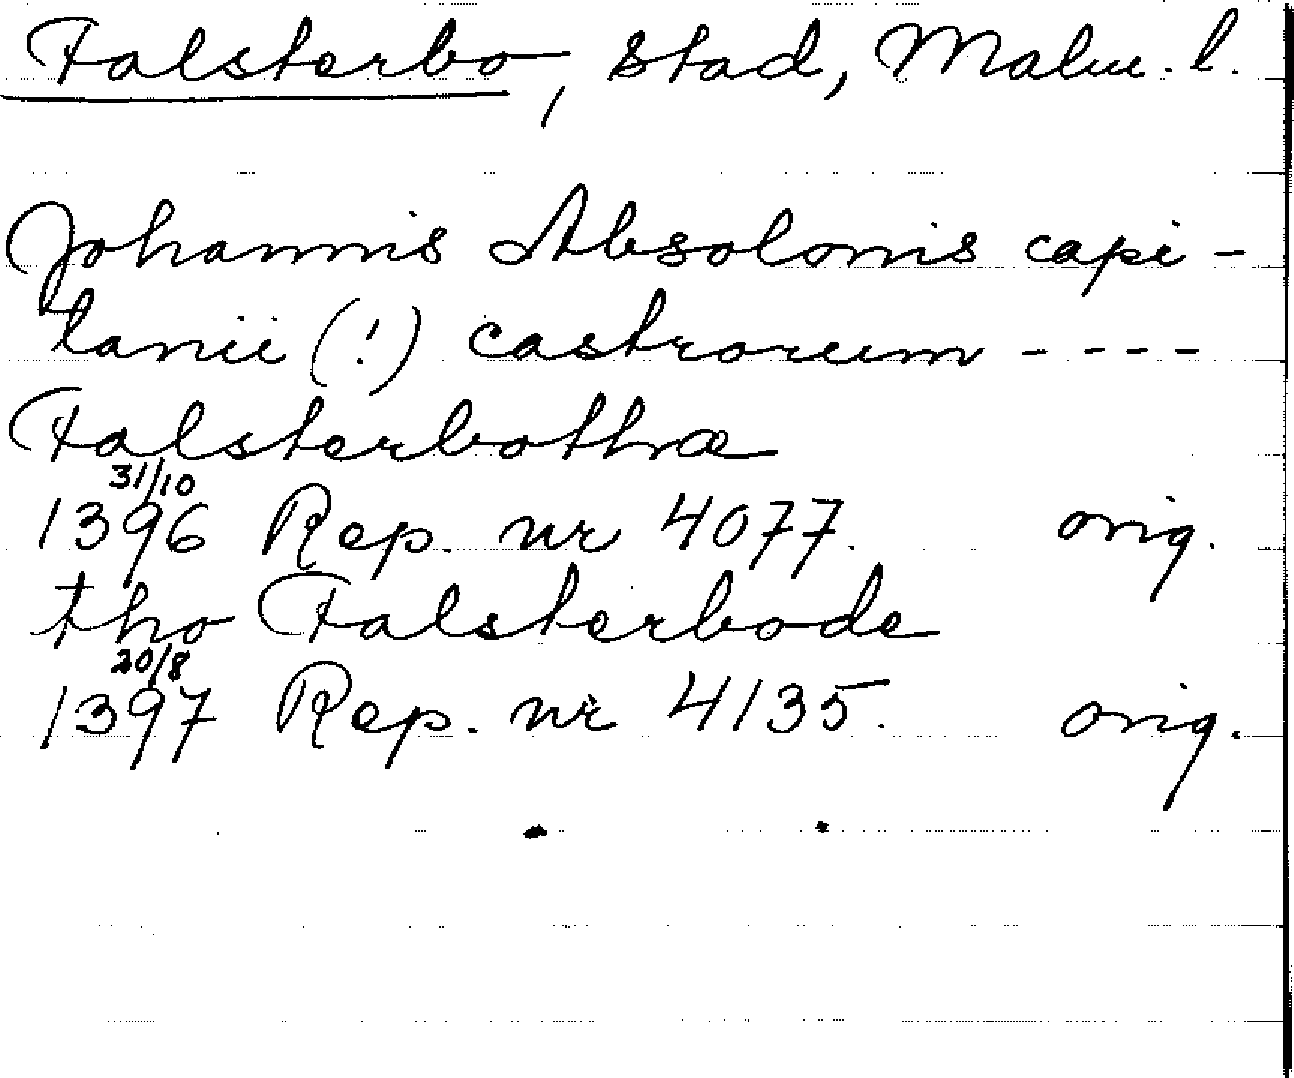 Falsterbo, stad, Malm. l.
Johannis Absolonis capi-
tanii (!) castrorum - - - -
Falsterbothæ
31/10
1396 Rep. nr 4077. orig.
tho Falsterbode
20/8
1397 Rep. nr 4135. orig.